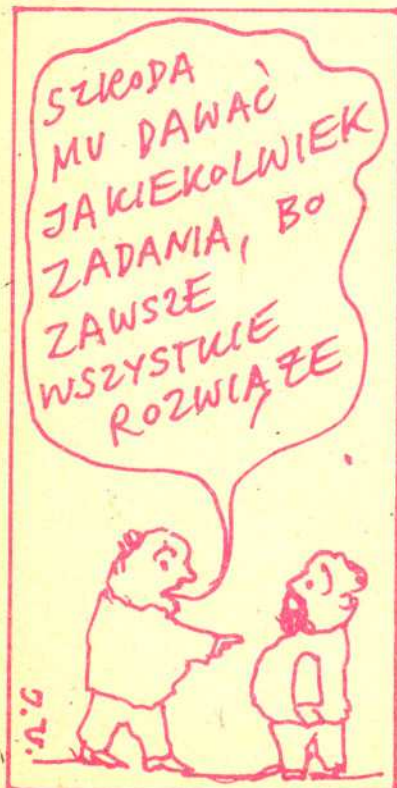 SZKODA
MU DAWAĆ
JAKIEKOLWIEK
ZADANIA, BO
ZAWSZE
WSZYSTKIE
ROZWIĄŻE
J.V.